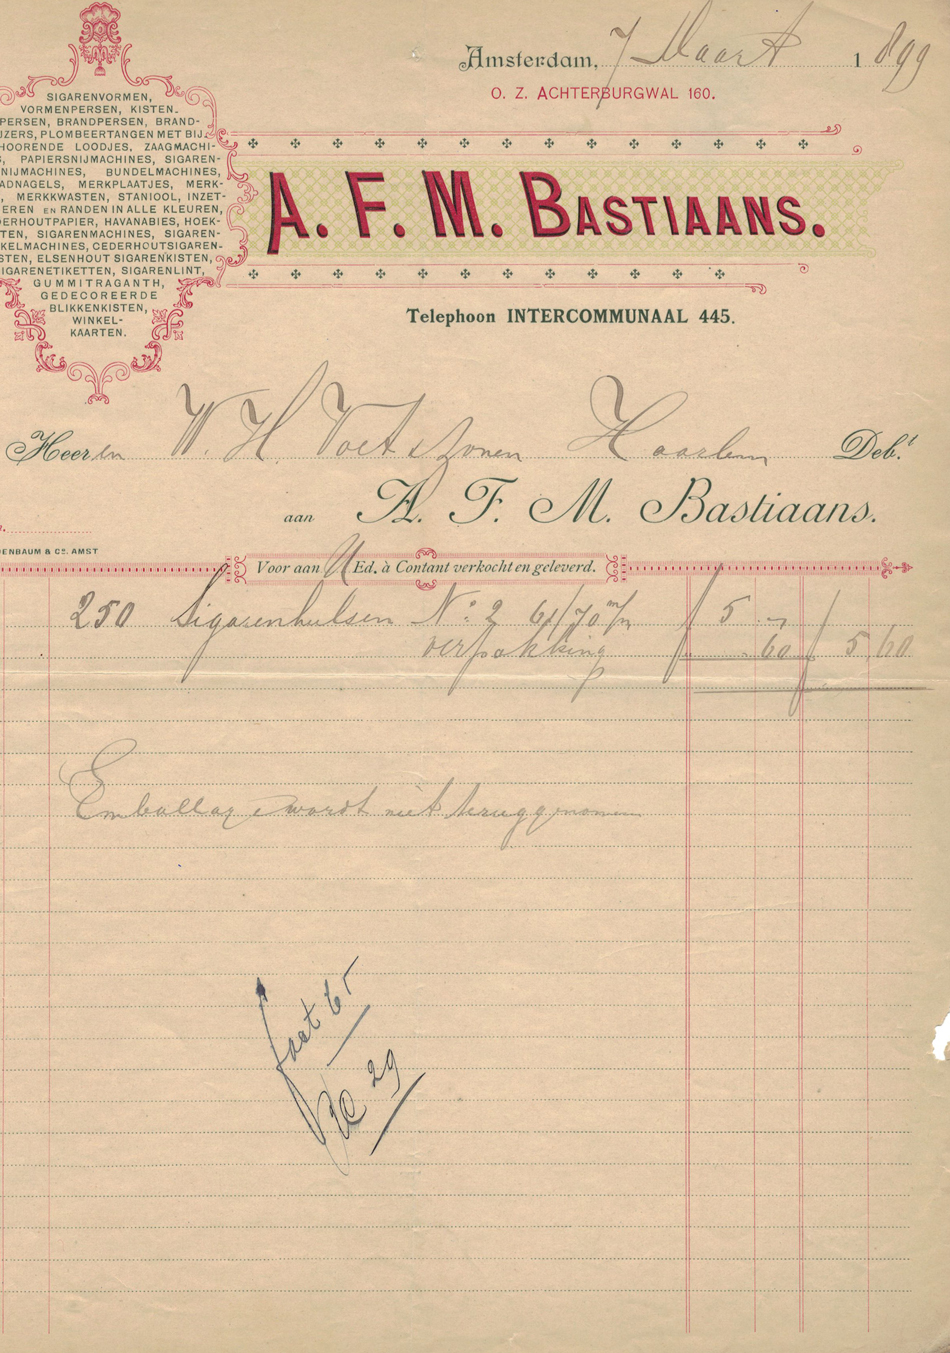 SIGARENVORMEN,
VORMENPERSEN, KISTEN-
PERSEN, BRANDPERSEN, BRAND-
IJZERS, PLOMBEERTANGEN MET BIJ-
HOORENDE LOODJES, ZAAGMACHI-
PAPIERSNIJMACHINES, SIGAREN-
SNIJMACHINES, BUNDELMACHINES,
ADNAGELS, MERKPLAATJES, MERK-
MERKKWASTEN, STANIOOL, INZET-
EREN EN RANDEN IN ALLE KLEUREN,
DERHOUTPAPIER, HAVANABIES, HOEK-
TEN, SIGARENMACHINES, SIGAREN-
KELMACHINES, CEDERHOUTSIGAREN-
STEN, ELSENHOUT SIGARENKISTEN,
IGARENETIKETTEN, SIGARENLINT,
GUMMITRAGANTH,
GEDECOREERDE
BLIKKENKISTEN,
WINKEL-
KAARTEN.
Amsterdam, 7 Maart 1899
O. Z. ACHTERBURGWAL 160.
A. F. M. BASTIAANS.
Telephoon INTERCOMMUNAAL 445.
Heeren W. H. Voet & Zonen Haarlem Debt.
aan A. F. M. Bastiaans.
DENBAUM & Co. AMST
Voor aan UEd. à Contant verkocht en geleverd.
250 Sigarenhulsen No. 2 61/70 m/m f 5.-
verpakking -.60 f 5.60
Emballage wordt niet teruggenomen
65
29